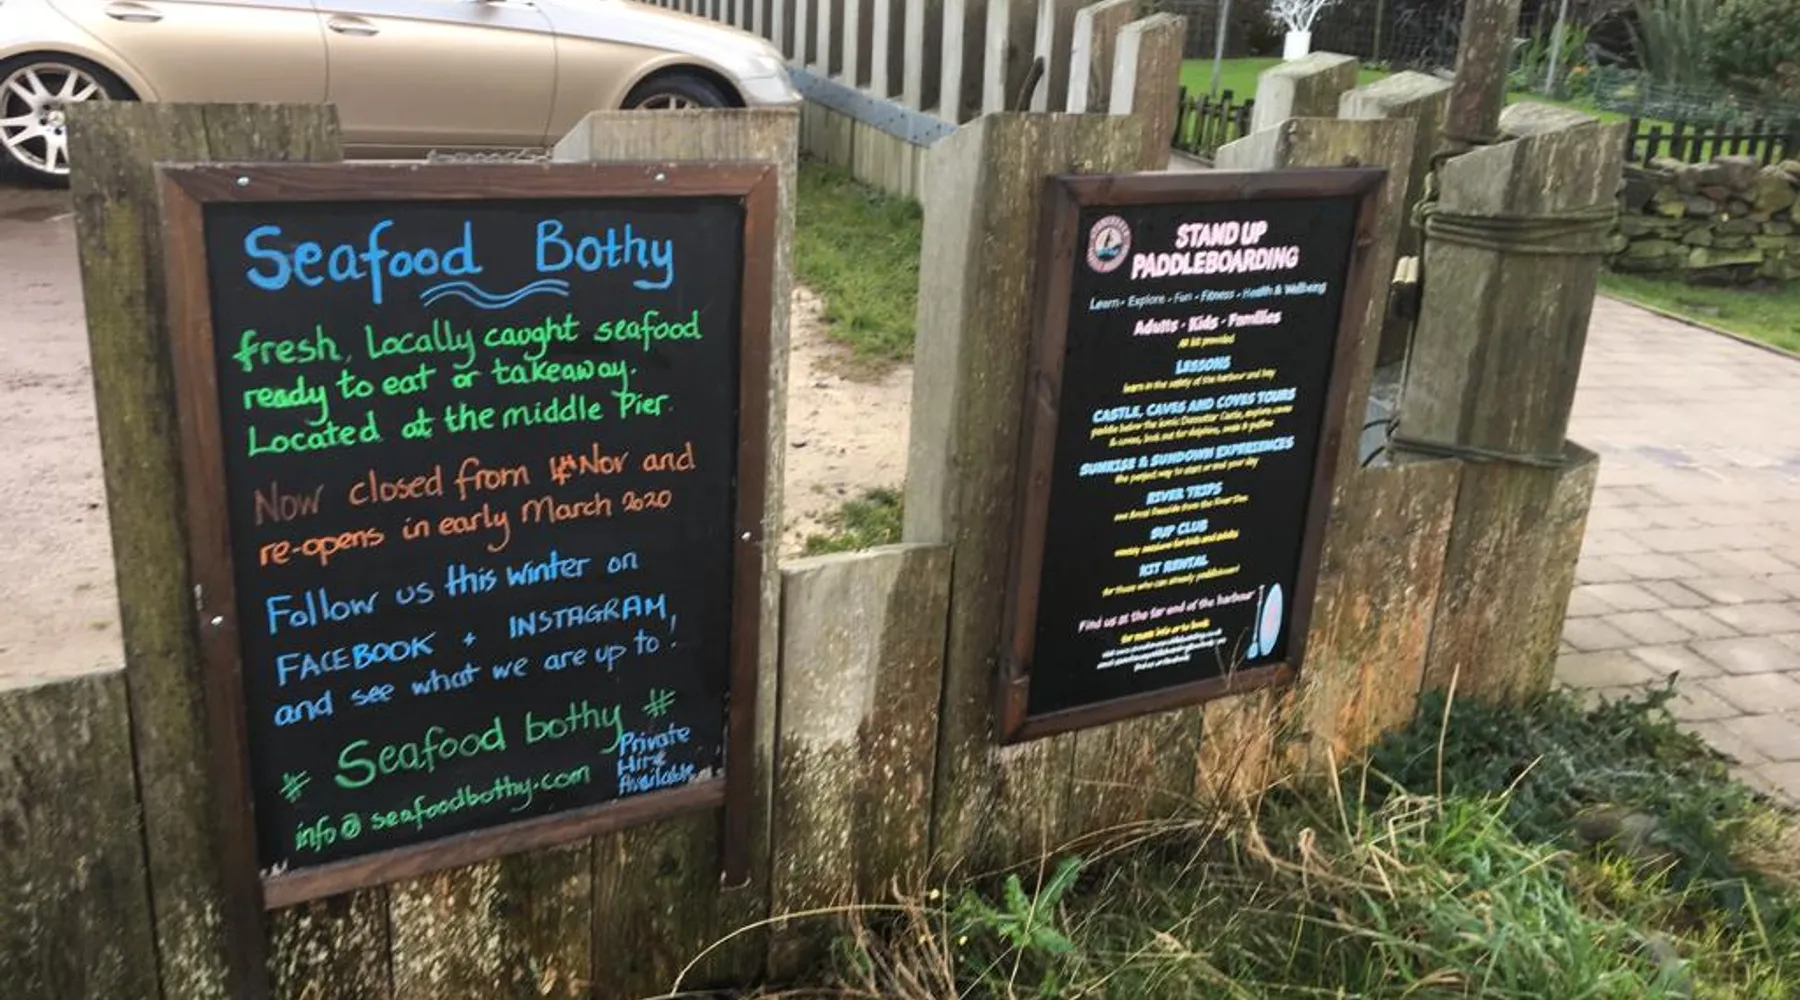 Seafood Bothy
fresh, Locally caught seafood
ready to eat or takeaway.
Located at the middle Pier.
Now closed from 4th Nov and
re-opens in early March 2020
Follow us this winter on
FACEBOOK + INSTAGRAM,
and see what we are up to!
# Seafood bothy #
info@seafoodbothy.com
Private
Hire
Available
STAND UP
PADDLEBOARDING
Learn - Explore - Fun - Fitness - Health & Wellbeing
Adults - Kids - Families
All kit provided
LESSONS
learn in the safety of the harbour and bay
CASTLE, CAVES AND COVES TOURS
paddle below the iconic Dunnottar Castle, explore caves
& coves, look out for dolphins, seals & puffins
SUNRISE & SUNDOWN EXPERIENCES
the perfect way to start or end your day
RIVER TRIPS
see Royal Deeside from the River Dee
SUP CLUB
weekly sessions for kids and adults
KIT RENTAL
for those who can already paddleboard
Find us at the far end of the harbour
for more info or to book